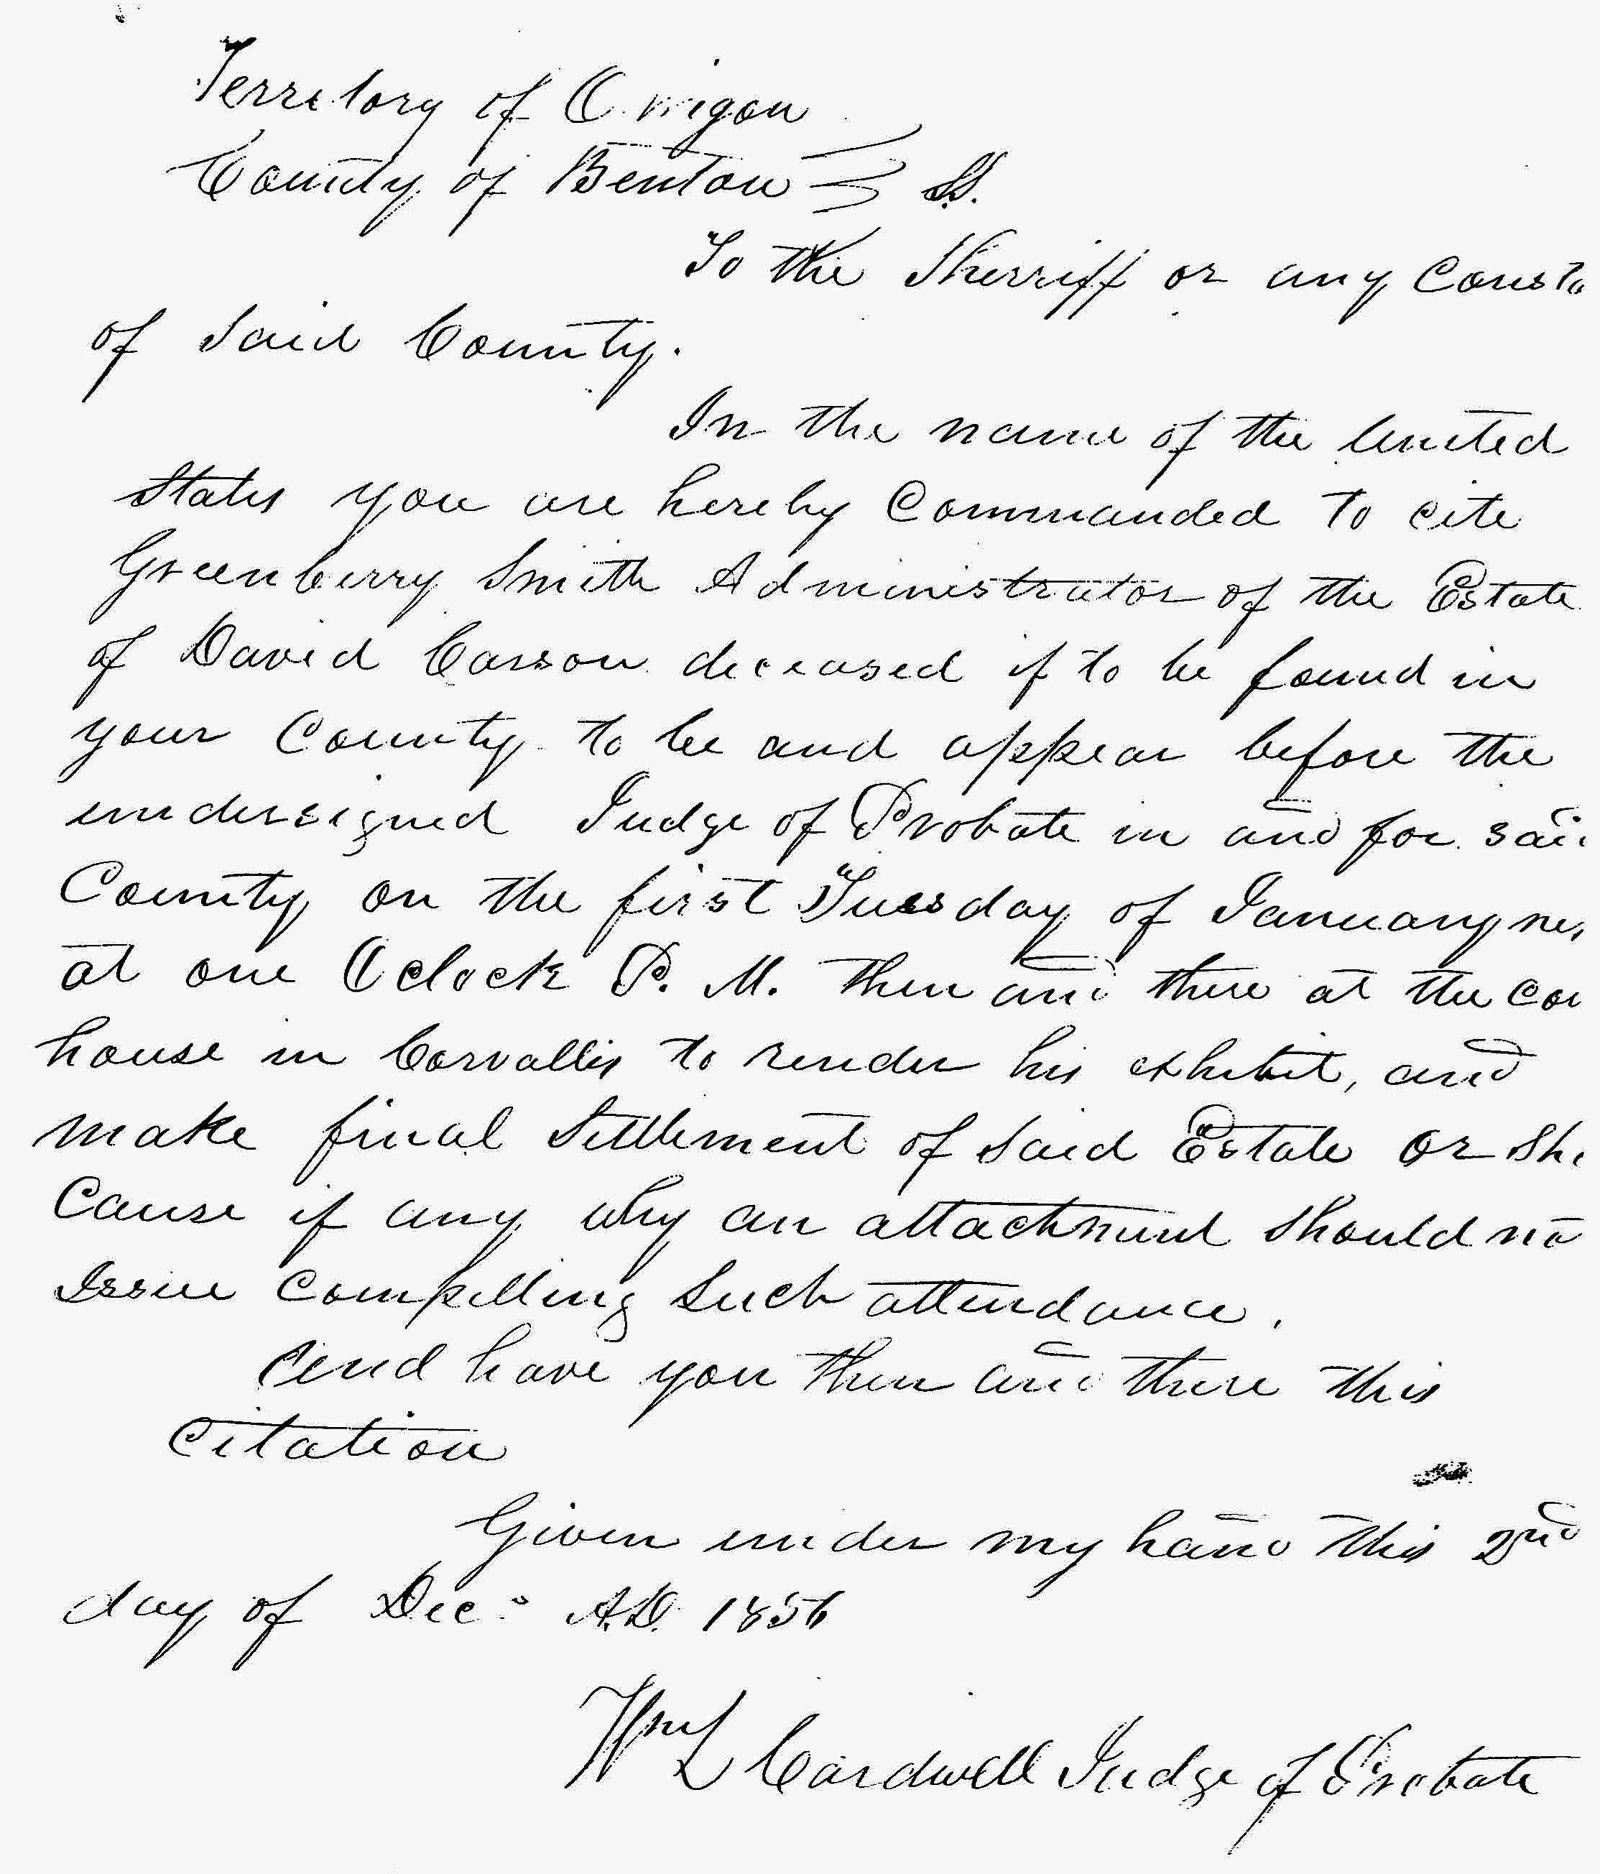 Territory of Origon
County of Benton } SS.
To the Sherriff or any Consta
of Said County.
In the name of the United
States you are hereby Commanded to cite
Greenberry Smith Administrator of the Estate
of David Carson deceased if to be found in
your County to be and appear before the
undersigned Judge of Probate in and for sai
County on the first Tuesday of January ne
at one Oclock P. M. then and there at the cou
house in Corvallis to render his exhibit, and
make final Settlement of Said Estate or Sho
Cause if any why an attachment should no
Issue Compelling Such attendance.
and have you then and there this
Citation
Given under my hand this 2nd
day of Dec. A.D. 1856
Wm L Cardwell Judge of Probate